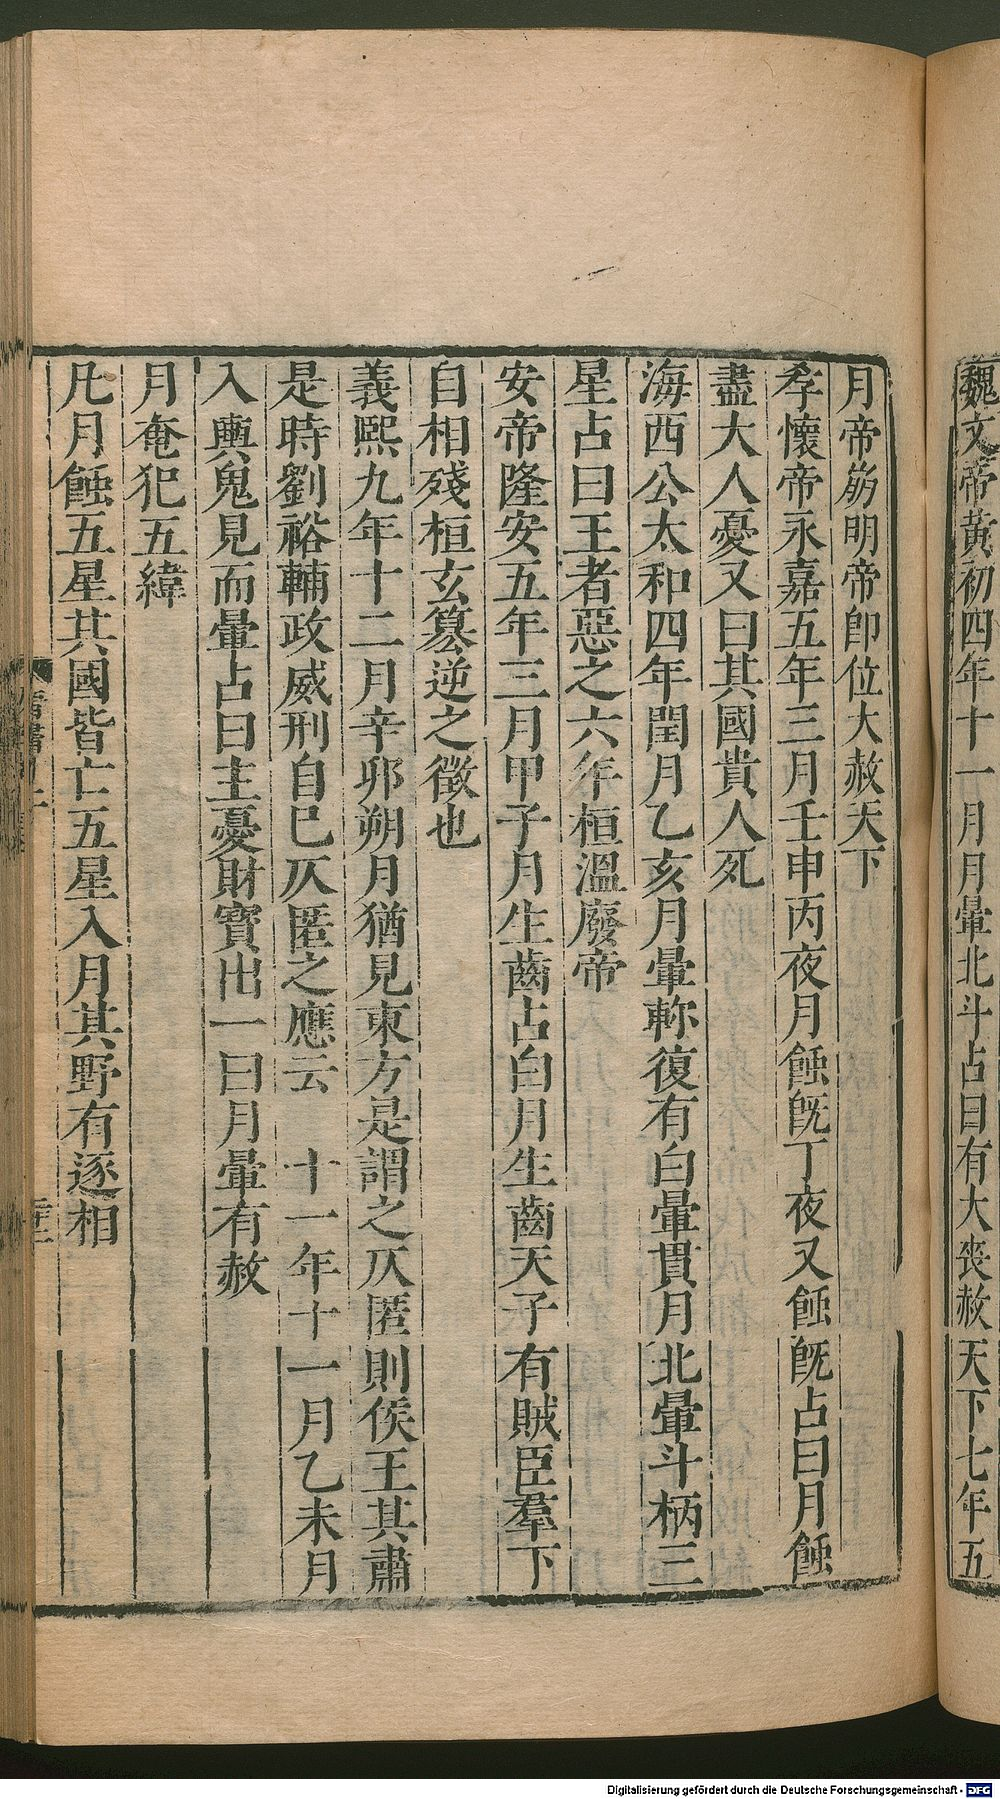 魏文帝黃初四年十一月月暈北斗占曰有大喪赦天下七年五
月帝崩明帝卽位大赦天下
孝懷帝永嘉五年三月壬申丙夜月蝕旣丁夜又蝕旣占曰月蝕
盡大人憂又曰其國貴人死
海西公太和四年閏月乙亥月暈軫復有白暈貫月北暈斗柄三
星占曰王者惡之六年桓溫廢帝
安帝隆安五年三月甲子月生齒占曰月生齒天子有賊臣羣下
自相殘桓玄簒逆之徵也
義熙九年十二月辛卯朔月猶見東方是謂之仄匿則侯王其肅
是時劉裕輔政威刑自巳仄匿之應云 十一年十一月乙未月
入輿鬼見而暈占曰主憂財寶出一曰月暈有赦
月奄犯五緯
凡月蝕五星其國皆亡五星入月其野有逐相
Digitalisierung gefördert durch die Deutsche Forschungsgemeinschaft - DFG